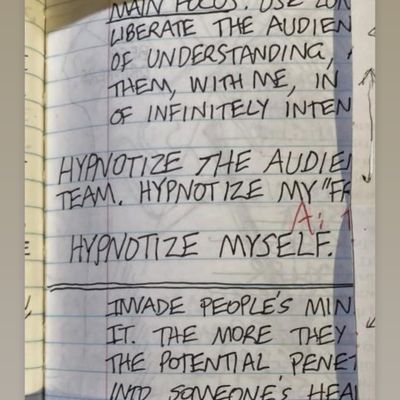 MAIN FOCUS. USE
LIBERATE THE AUDIEN
OF UNDERSTANDING,
THEM, WITH ME, IN
OF INFINITELY INTEN
HYPNOTIZE THE AUDIE
TEAM. HYPNOTIZE MY "F
A:
HYPNOTIZE MYSELF.
INVADE PEOPLE'S MIN
IT. THE MORE THEY
THE POTENTIAL PENET
INTO SOMEONE'S HEA